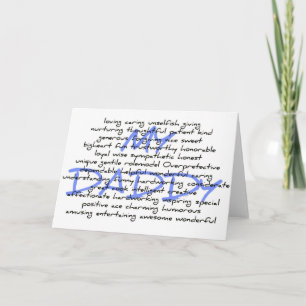 loving caring unselfish giving
nurturing thoughtful patient kind
generous nice sweet
bigheart trustworthy honorable
loyal wise sympathetic honest
unique gentle rolemodel Overprotective
helpful wonderful
hardworking considerate
intelligent creative
affectionate hardworking inspiring special
positive ace charming humorous
amusing entertaining awesome wonderful
MY
DADDY